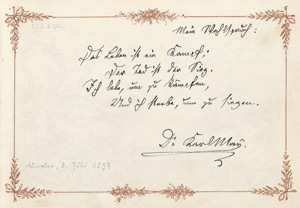 Mein Wahlspruch:
Das Leben ist ein Kampf;
Der Tod ist der Sieg.
Ich lebe, um zu kämpfen,
Und ich sterbe, um zu siegen.
Dr. Karl May.
München, 8. Juli 1897